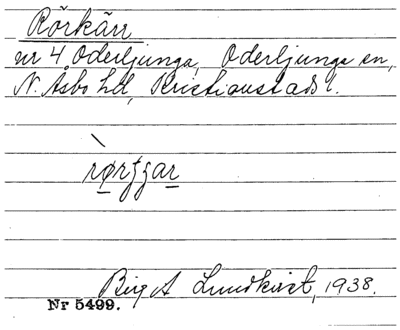 Rörkärr
nr 4 Oderljunga, Oderljunga sn,
N. Åsbo hd, Kristianstads l.
Birg A Lundkvist, 1938.
Nr 5499.